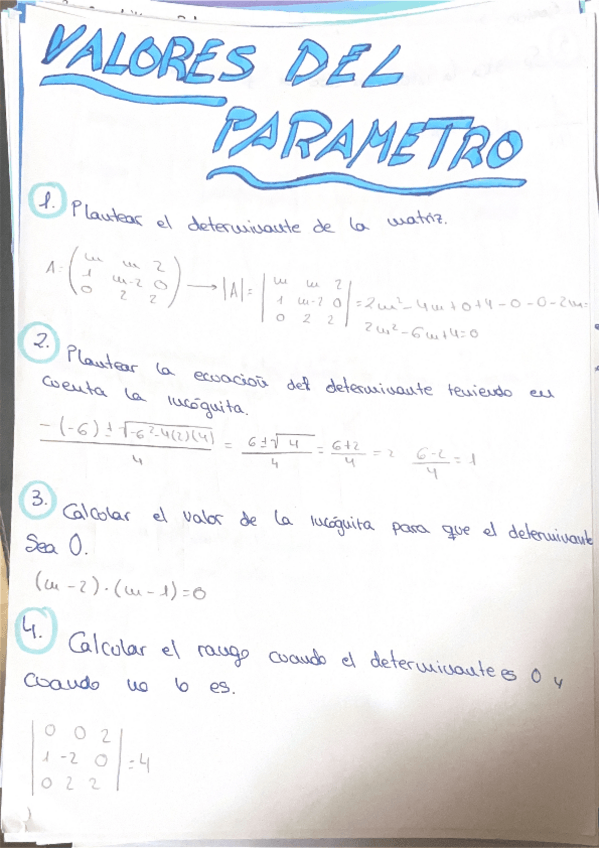 VALORES DEL
PARAMETRO
1. Plantear el determinante de la matriz.
A = ( m m 2 / 1 m-2 0 / 0 2 2 ) → |A| = | m m 2 / 1 m-2 0 / 0 2 2 | = 2m²-4m+0+4-0-0-2m=
2m²-6m+4=0
2. Plantear la ecuación del determinante teniendo en
cuenta la incógnita.
-(-6) ± √-6²-4(2)(4) / 4 = 6±√4 / 4 = 6+2 / 4 = 2 6-2 / 4 = 1
3. Calcolar el valor de la incógnita para que el determinante
sea 0.
(m-2)·(m-1)=0
4. Calcolar el rango cuando el determinante es 0 y
cuando no lo es.
| 0 0 2 / 1 -2 0 / 0 2 2 | = 4